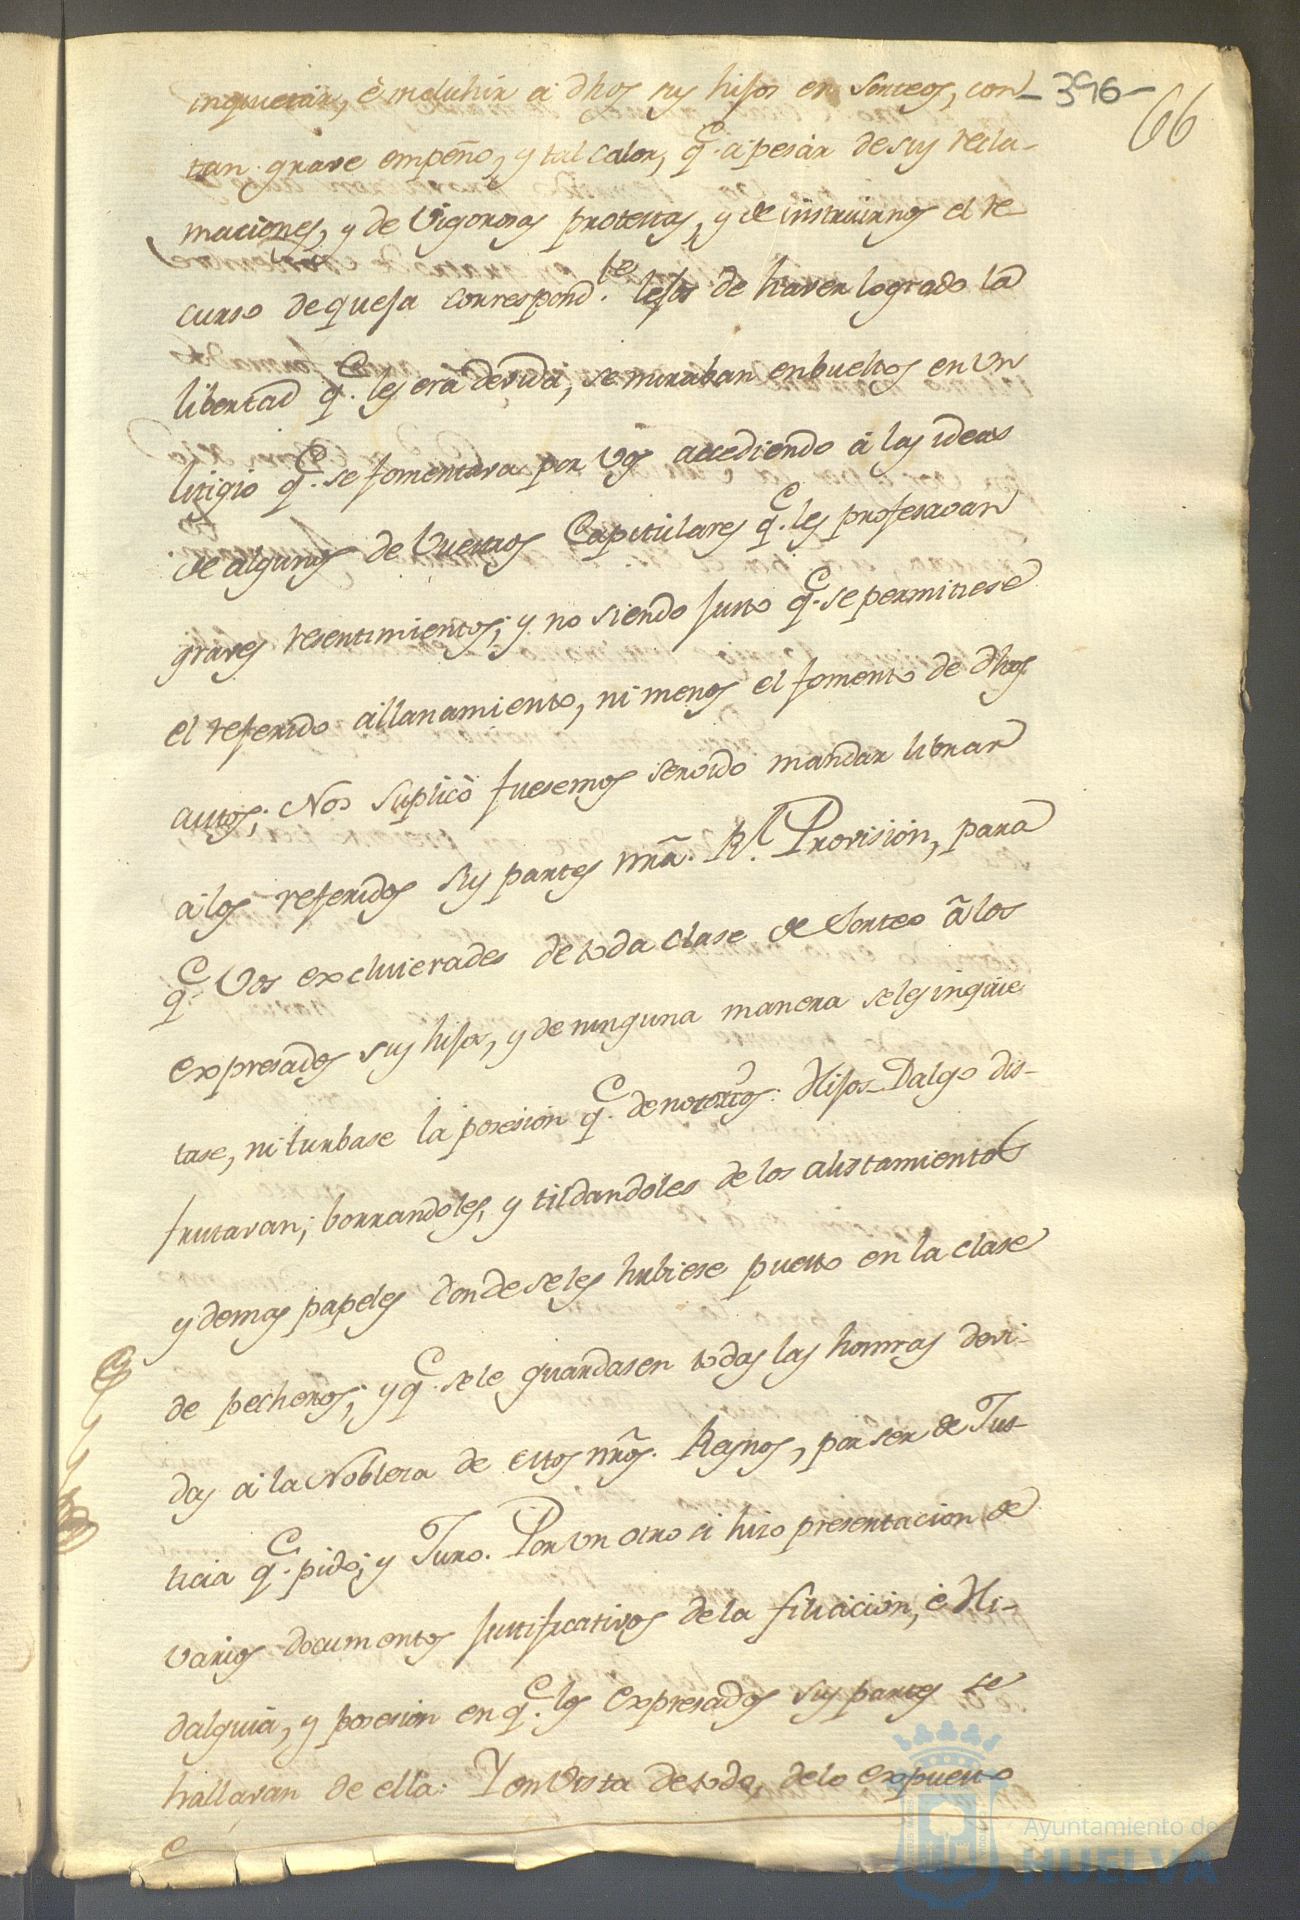 inquietar, è incluhir a dhos sus hijos en Sorteos, con -396- 66
tan grave empeño, y tal calor, q.e a pesar de sus recla-
maciones, y de Vigorosas protestas, y de instruirnos el re-
curso de queja correspond.te lejos de haver logrado la
libertad q.e les era devida, se miraban enbueltos en un
litigio q.e se fomentava por Vos accediendo à las ideas
de algunos de Vuestros Capitulares q.e les profesavan
graves resentimientos; y no siendo justo q.e se permitiese
el referido allanamiento, ni menos el fomento de dhos
autos; Nos Suplicò fuesemos servido mandar librar
a los referidos sus partes nrã. Rl. Provision, para
q.e Vos excluierades de toda clase de Sorteo à los
expresados sus hijos, y de ninguna manera seles inquie
tase, ni turbase la posesion q.e de notorios Hijos-Dalgo dis-
frutavan; borrandoles, y tildandoles de los alistamientos
y demas papeles donde seles hubiese puesto en la clase
de pecheros; y q.e sele guardasen todas las honrras devi-
das a la Nobleza de estos nrõs. Reynos, por ser de Jus-
ticia q.e pido; y Juro. Por un otro si hizo presentacion de
varios documentos justificativos de la filiacion, è Hi-
dalguia, y posesion en q.e los expresados sus partes se
hallavan de ella: Y en Vista de todo, de lo expuesto
Ayuntamiento de
HUELVA